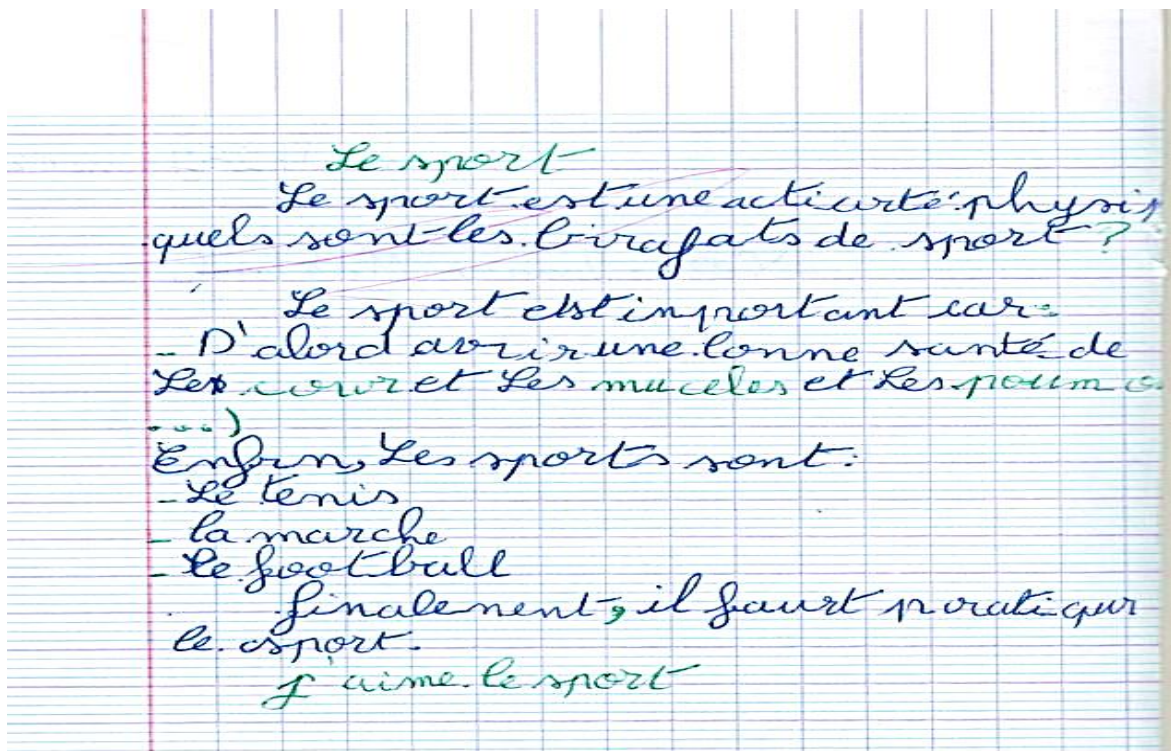 Le sport
Le sport est une acticurté physi
quels sont les birafats de sport ?
Le sport elst inportant car:
- D'alord avrir une lonne santé de
Les courr et Les muceles et Les poum
...)
Enfin, Les sports sont:
- Le tenis
- la marche
- le football
finalement, il faurt pratiqur
le sport.
J'aime le sport